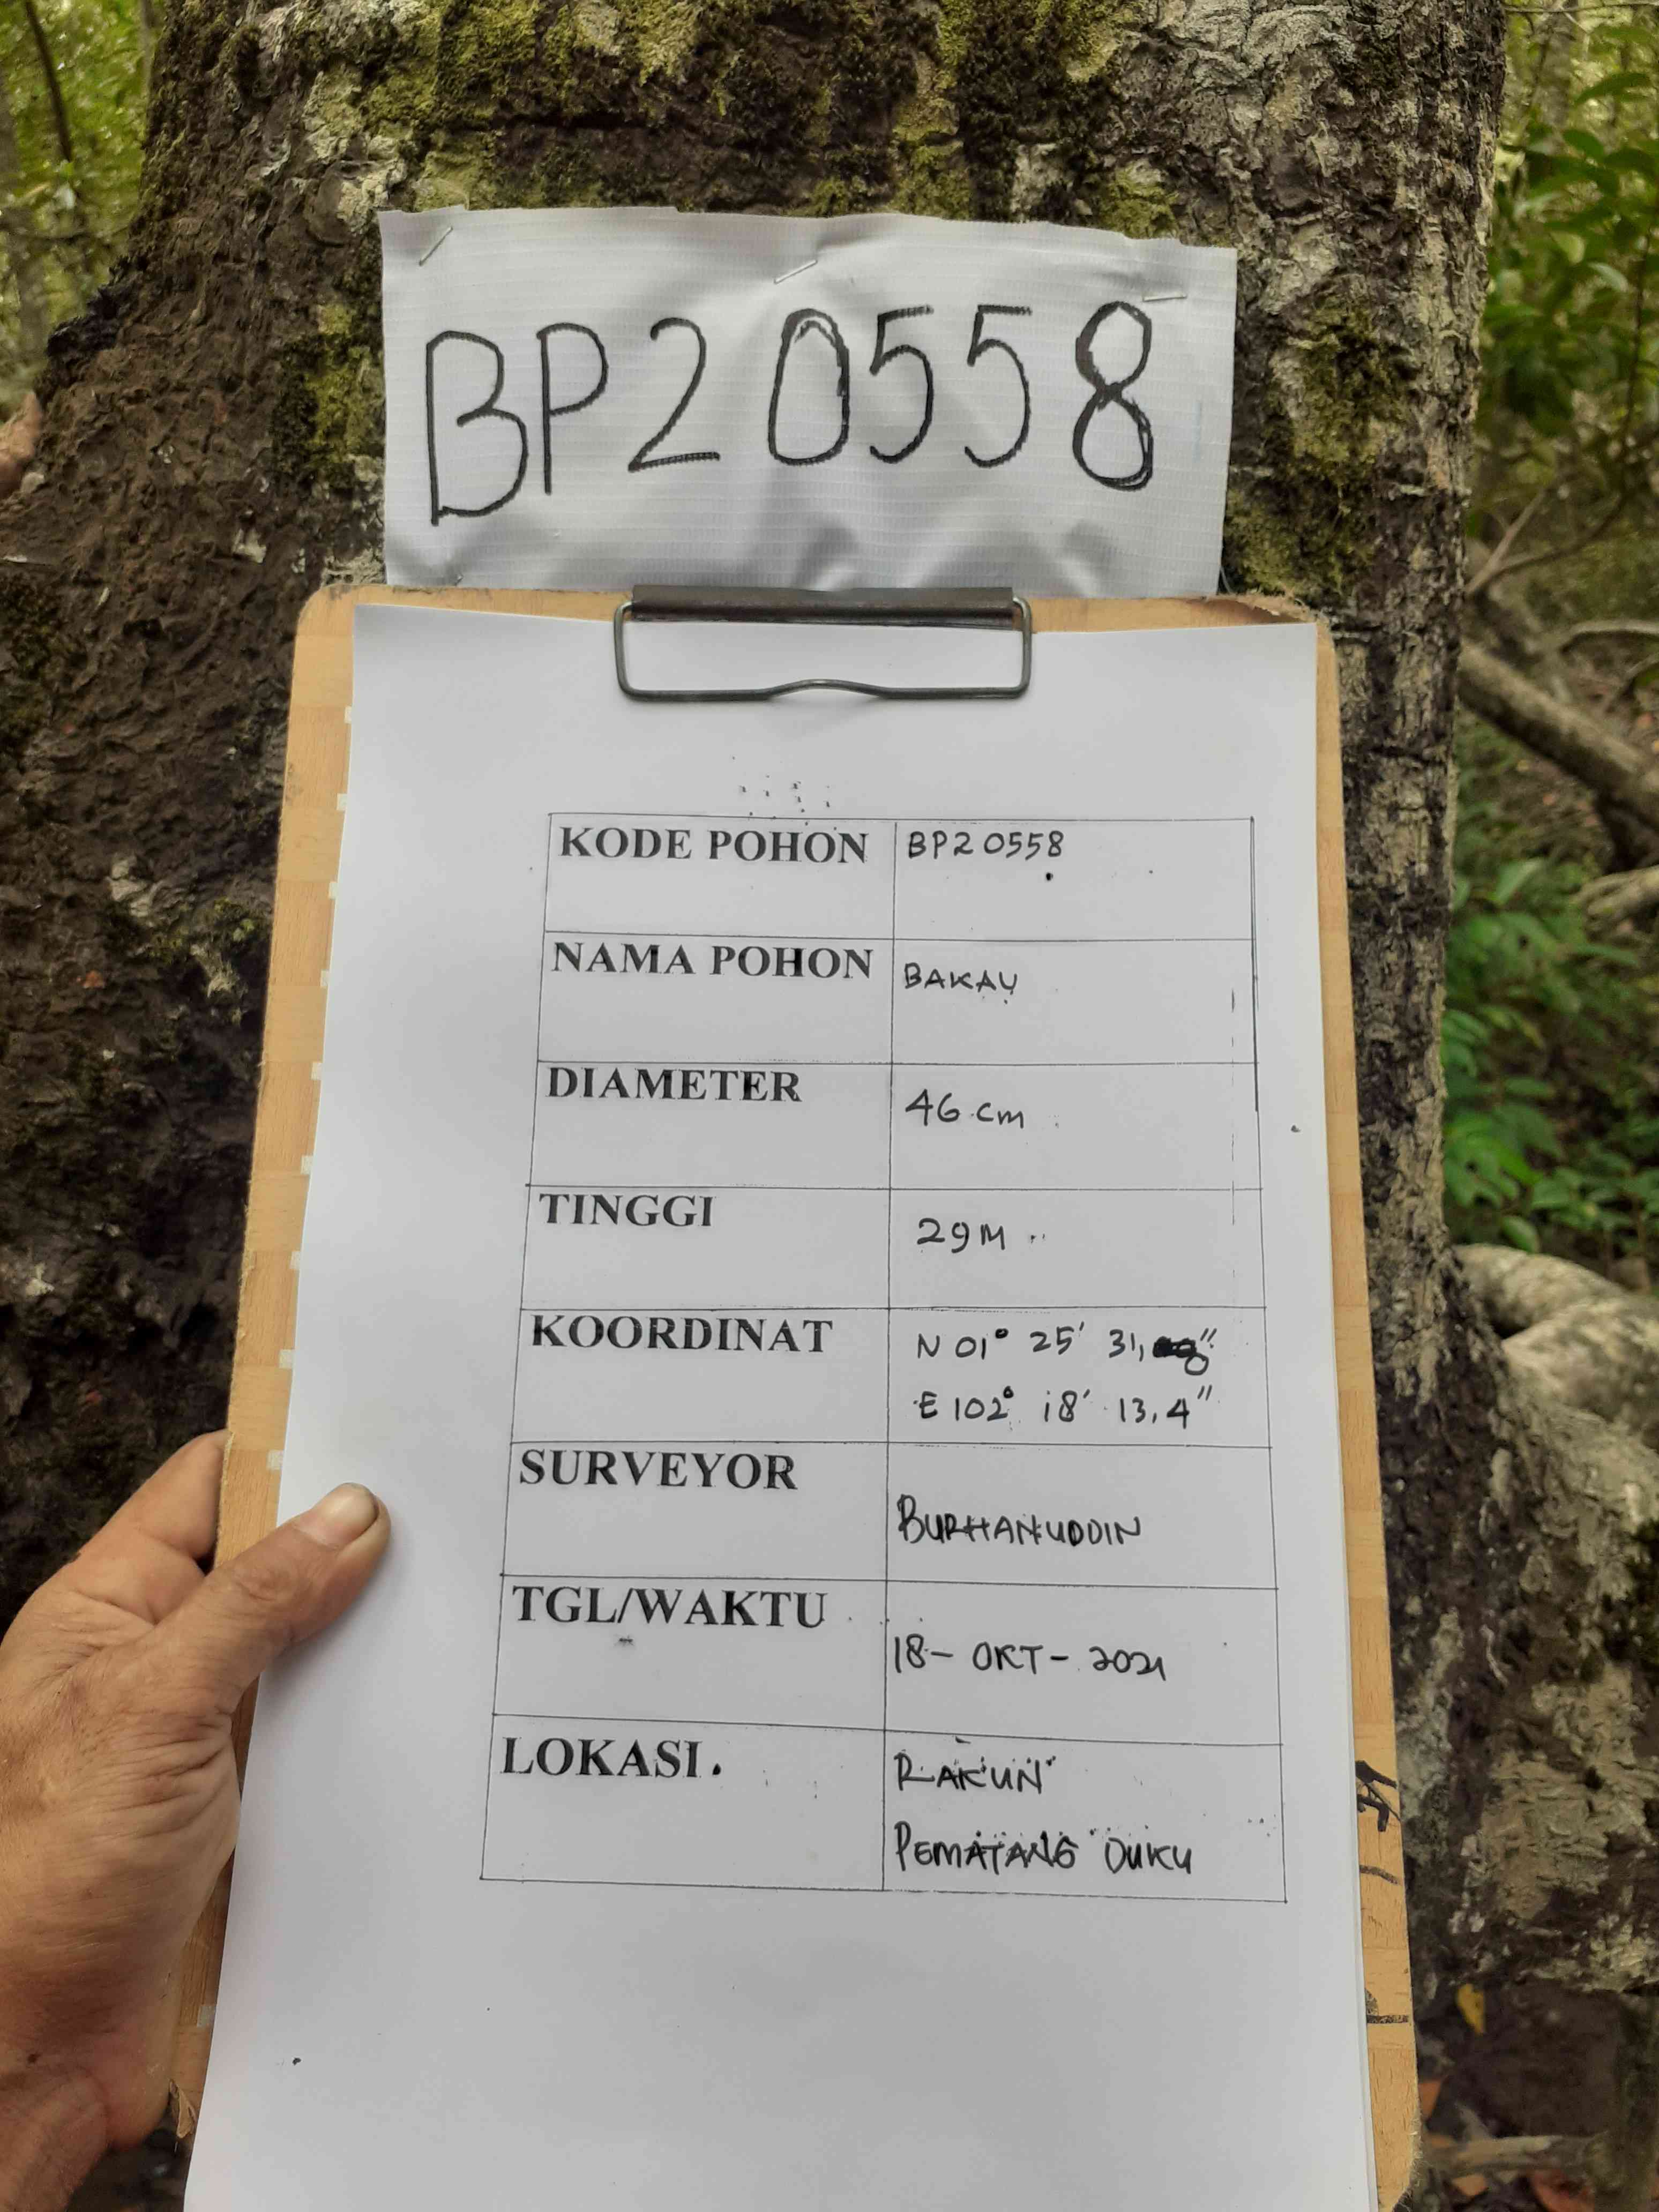 BP20558
KODE POHON BP20558
NAMA POHON BAKAU
DIAMETER 46 cm
TINGGI 29 M
KOORDINAT N 01° 25' 31,
E 102° 18' 13,4"
SURVEYOR BURHANUDDIN
TGL/WAKTU 18 - OKT - 2021
LOKASI. RAKUN
PEMATANG DUKU